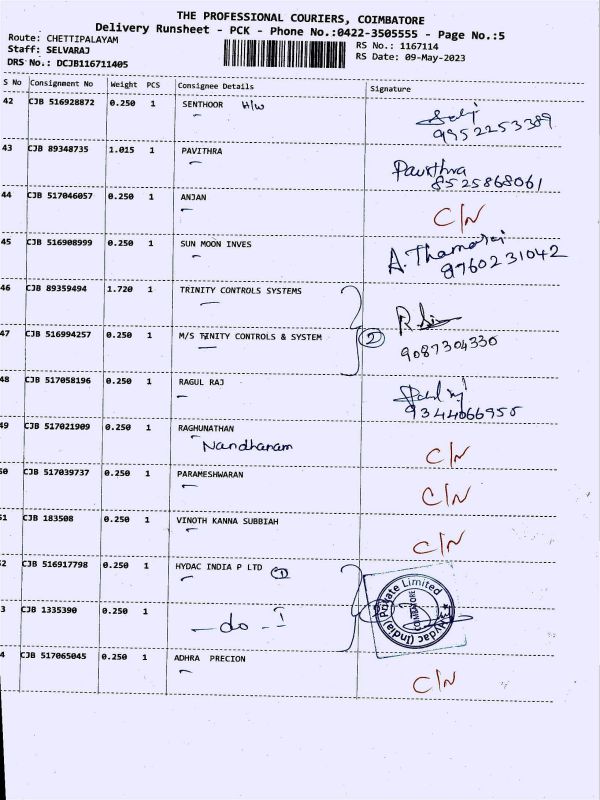 THE PROFESSIONAL COURIERS, COIMBATORE
Delivery Runsheet - PCK - Phone No.:0422-3505555 - Page No.:5
Route: CHETTIPALAYAM RS No.: 1167114
Staff: SELVARAJ RS Date: 09-May-2023
DRS No.: DCJB116711405
S No Consignment No Weight PCS Consignee Details Signature
42 CJB 516928872 0.250 1 SENTHOOR H/W
9952253389
43 CJB 89348735 1.015 1 PAVITHRA Pavithra
8525868061
44 CJB 517046057 0.250 1 ANJAN C/N
45 CJB 516908999 0.250 1 SUN MOON INVES A.Thamarai
9760231042
46 CJB 89359494 1.720 1 TRINITY CONTROLS SYSTEMS
47 CJB 516994257 0.250 1 M/S TINITY CONTROLS & SYSTEM 2
9087304330
48 CJB 517058196 0.250 1 RAGUL RAJ
9344066955
49 CJB 517021909 0.250 1 RAGHUNATHAN C/N
Nandhanam
50 CJB 517039737 0.250 1 PARAMESHWARAN C/N
51 CJB 183508 0.250 1 VINOTH KANNA SUBBIAH C/N
52 CJB 516917798 0.250 1 HYDAC INDIA P LTD 1
3 CJB 1335390 0.250 1 - do - 1
Hydac (India) Private Limited
COIMBATORE
4 CJB 517065045 0.250 1 ADHRA PRECION C/N